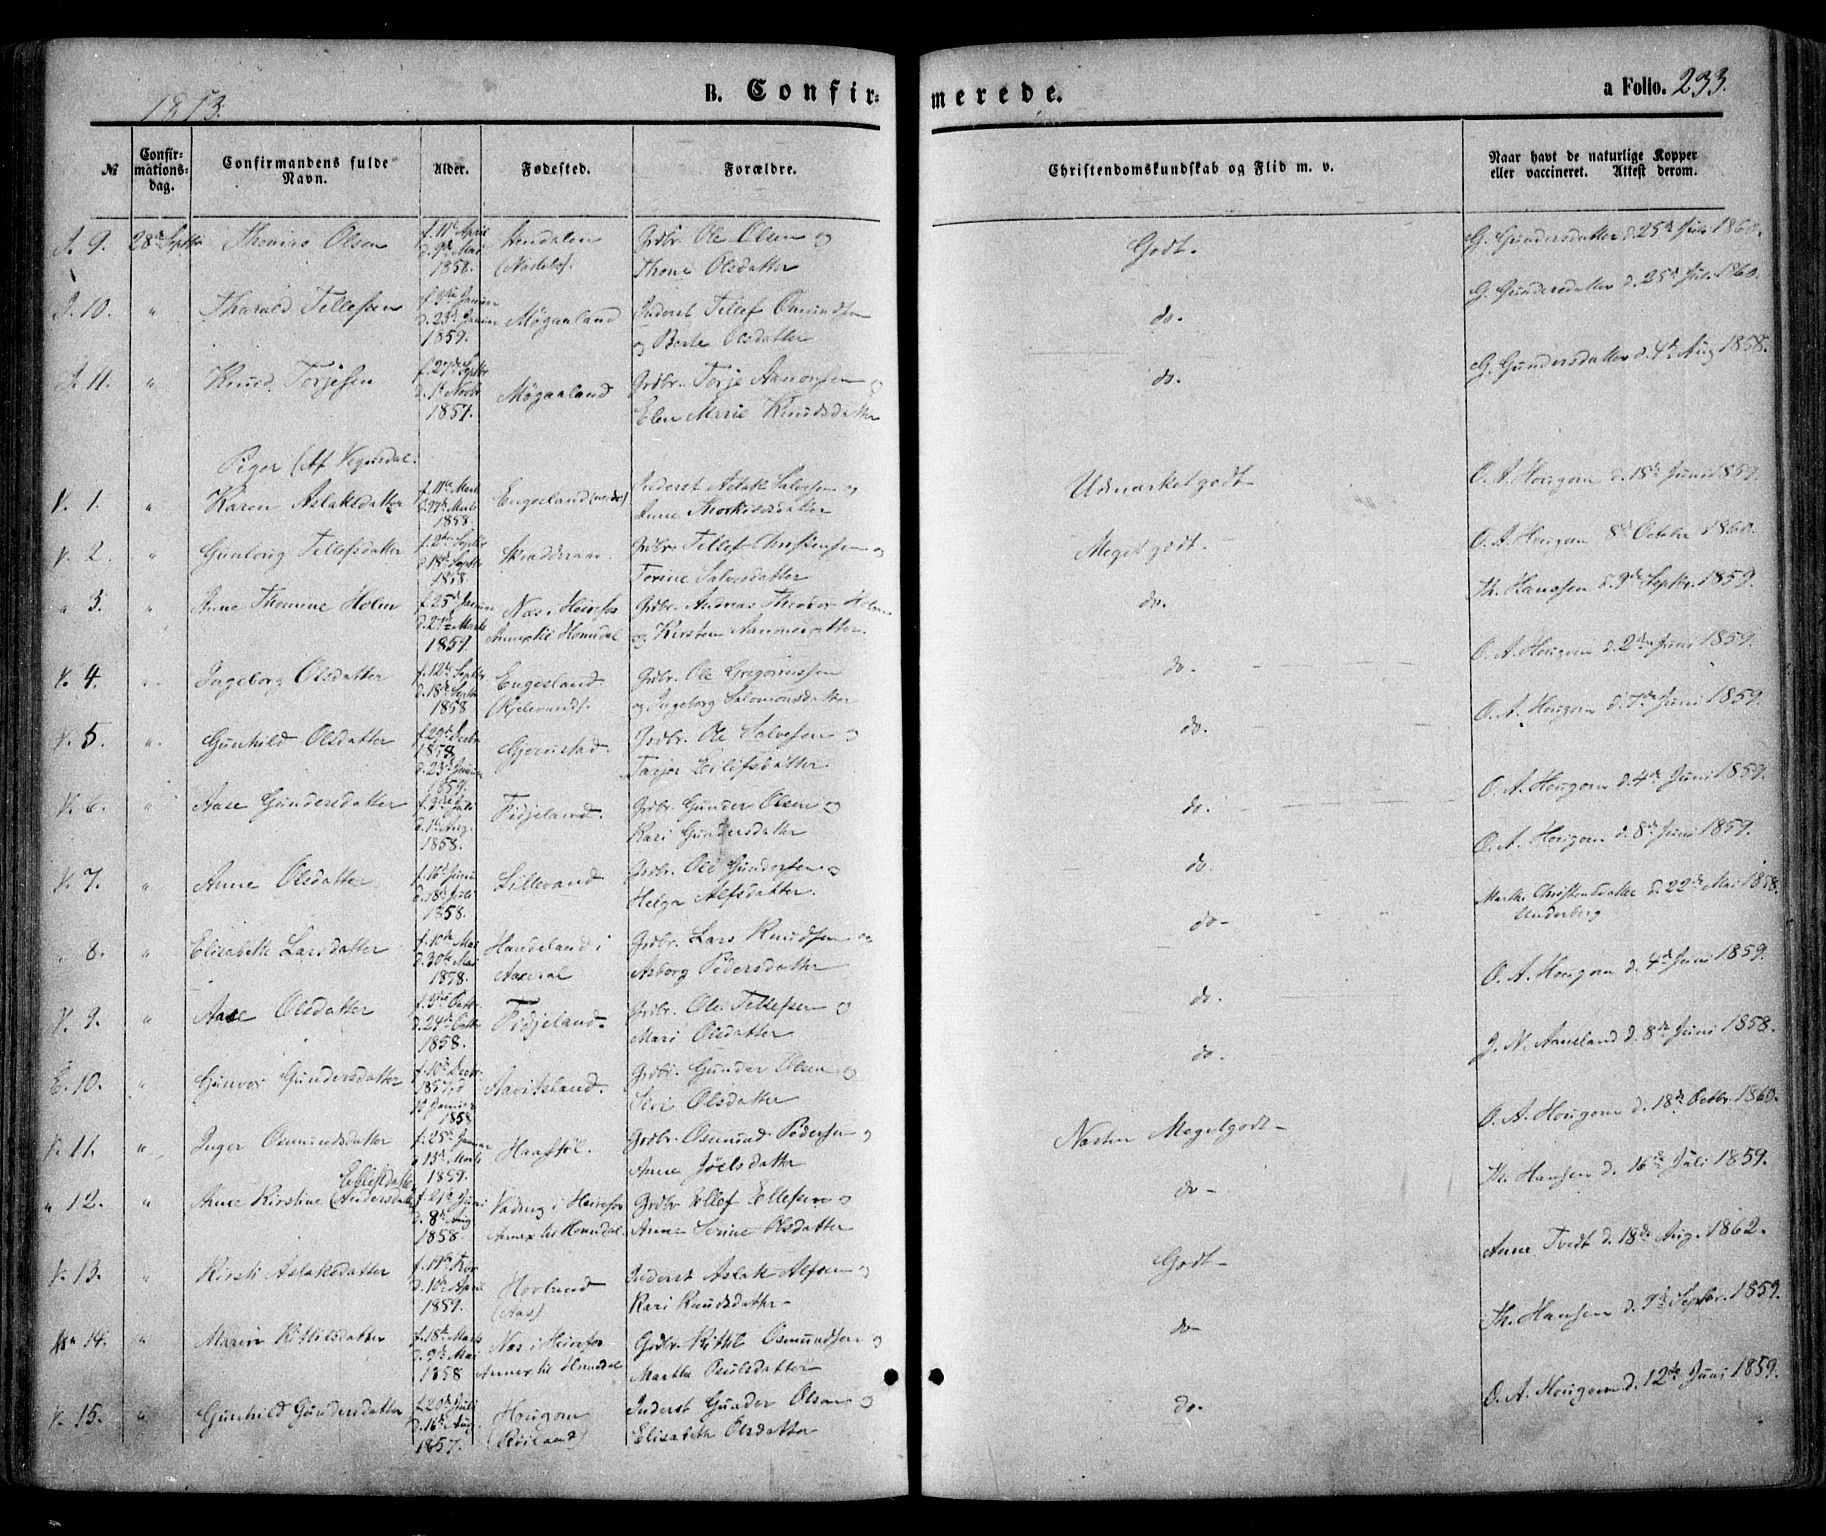 1873.
B. Confir-
merede.
a Folio. 233.
№
Confir-
mations-
dag.
Confirmandens fulde
Navn.
Alder.
Fødested.
Forældre.
Christendomskundskab og Flid m. v.
Naar havt de naturlige Kopper
eller vaccineret. Attest derom.
9. 28de Septbr Thomas Olsen f. 11te April d. 9de Mai 1858. Grdbr. Ole Olsen og Thone Olsdatter Godt. G. Gundersdatter d. 25de Juli 1860.
10. " Tharald Tellefsen 1859. Møgaaland Inderst Tellef Osmundsen og Berte Olsdatter do. G. Gundersdatter d. 25de Juli 1860.
11. " Knud Torjesen f. 27de Septbr d. 1te Novbr 1857. Møgaaland Grdbr. Torje Aanonsen og Elen Marie Knudsdatter do. G. Gundersdatter d. 4de Aug 1858.
Piger (Af Vegusdal.
V. 1. " Karen Aslaksdatter f. 11te Marts 1858 Engesland Inderst Aslak Salvesen og Anne Thorkildsdatter Udmærket godt O. A. Hougom d. 18de Juni 1859.
V. 2. " Gunborg Tellefsdatter f. 2den Septbr d. 18de Septbr 1858 Grdbr. Tellef Christensen og Torine Salvesdatter Meget godt. O. A. Hougom 8de October 1860.
" 3. " Anne Thomine Holm f. 25de Januar d. 27de Marts 1859. Næs i Heirefos Annex til Homdal Grdbr. Andreas Theodor Holm og Kirsten Aanonsdatter. do. Th. Hanssen d. 9de Septbr. 1859.
V. 4. " Ingeborg Olsdatter f. 12te Septbr d. 18de Septbr 1858 Engesland Grdbr. Ole Gregoriussen og Ingeborg Salomonsdatter do. O. A. Hougom d. 2den Juni 1859.
V. 5. " Gunhild Olsdatter f. 29de Decbr 1858 d. 23de Januar 1859. Gjerustad Grdbr. Ole Salvesen og Tarjer Eilifsdatter do. O. A. Hougom d. 7de Juni 1859.
V. 6. " Aase Gundersdatter f. 3die Juli d. 1te Aug. 1858. Fidjeland. Grdbr. Gunder Olsen og Kari Gundersdatter do. O. A. Hougom d. 4de Juni 1859.
V. 7. " Anne Olsdatter f. 16de Juni d. 18de Juli 1858. Lillevand Grdbr. Ole Gundersen og Helga Alfsdatter. do. O. A. Hougom d. 8de Juni 1859.
" 8. " Elisabeth Larsdatter f. 10de Mai d. 30te Mai 1858. Haudeland i Aaseral Grdbr. Lars Knudsen og Asborg Pedersdatter do. Marthe Christensdatter d. 22de Mai 1858. Underberg
V. 9. " Aase Olsdatter f. 3die Octbr. d. 24de Octbr 1858. Fidjeland. Grdbr. Ole Tellefsen og Mari Olsdatter do. O. A. Hougom d. 4de Juni 1859.
E. 10. " Gunvor Gundersdatter f. 10de Decbr 1857, d. 10 Januar 1858 Aavitsland. Grdbr. Gunder Olsen og Siri Olsdatter do. J. N. Aaneland d. 8de Juni 1858.
V. 11. " Inger Osmundsdatter f. 25de Januar d. 13de Marts 1859. Haaftøl. Grdbr. Osmund Pedersen og Anne Joelsdatter Næsten Megetgodt O. A. Hougom d. 18de Octbr. 1860.
" 12. " Anne Kirstine Ellefsdatter (Andersdatter) f. 21de Juni d. 8de Aug 1858. i Heirefos Annex til Homdal. Grdbr. Ellef Ellefsen og Anne Serine Olsdatter do Th. Hansen d. 16de Juli 1859.
V. 13. " Kirsti Aslaksdatter 1859. Hovlund (Aas) Inderst Aslak Alfsen og Kari Knudsdatter Godt Anne Tvedt d. 18de Aug. 1862.
14. " Maren Kittilsdatter f. 18de Marts d. 9de Mai 1858 Næs i Heirefos Annex til Homdal Grdbr. Kittil Osmundsen og Marthe Osulsdatter do Th. Hansen d. 9de Septbr. 1859.
V. 15. " Gunhild Gundersdatter f. 20de Juli d. 16de Aug. 1857. Hougom (Røiland) Inderst Gunder Olsen og Elisabeth Olsdatter do. O. A. Hougom d. 12te Juni 1859.